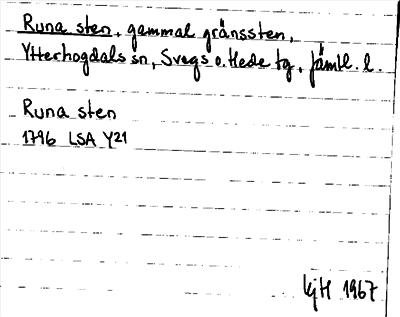 Runa sten, gammal gränssten,
Ytterhogdals sn, Svegs o. Hede tg, Jämtl. l.
Runa sten
1796 LSA Y21
KjH 1967